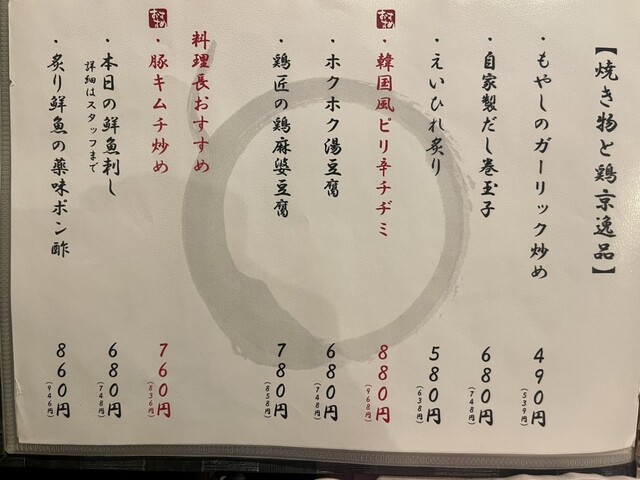 【焼き物と鶏京逸品】
・もやしのガーリック炒め 490円
(539円)
・自家製だし巻玉子 680円
(748円)
・えいひれ炙り 580円
(638円)
おすすめ
・韓国風ピリ辛チヂミ 880円
(968円)
・ホクホク湯豆腐 680円
(748円)
・鶏匠の鶏麻婆豆腐 780円
(858円)
料理長おすすめ
おすすめ
・豚キムチ炒め 760円
(836円)
・本日の鮮魚刺し 680円
詳細はスタッフまで (748円)
・炙り鮮魚の薬味ポン酢 860円
(946円)